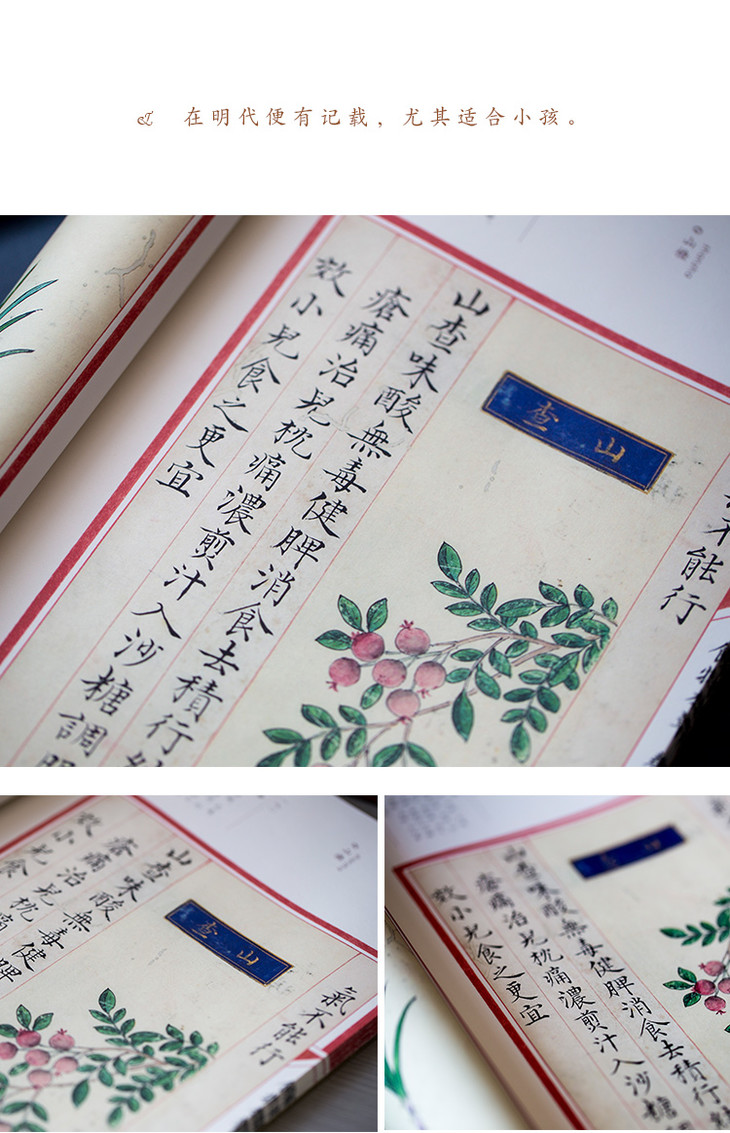 在明代便有记载，尤其适合小孩。
不能行
山查
山查味酸無毒健脾消食去積行
瘡痛治兒枕痛濃煎汁入沙糖調
效小兒食之更宜
氣不能行
山查
山查味酸無毒健脾
瘡痛治兒枕痛
效小兒食
山查味酸無毒健脾消食去積行
瘡痛治兒枕痛濃煎汁入沙糖
效小兒食之更宜